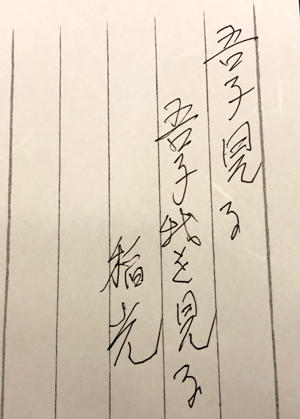 吾子見る
吾子我を見る
稲光